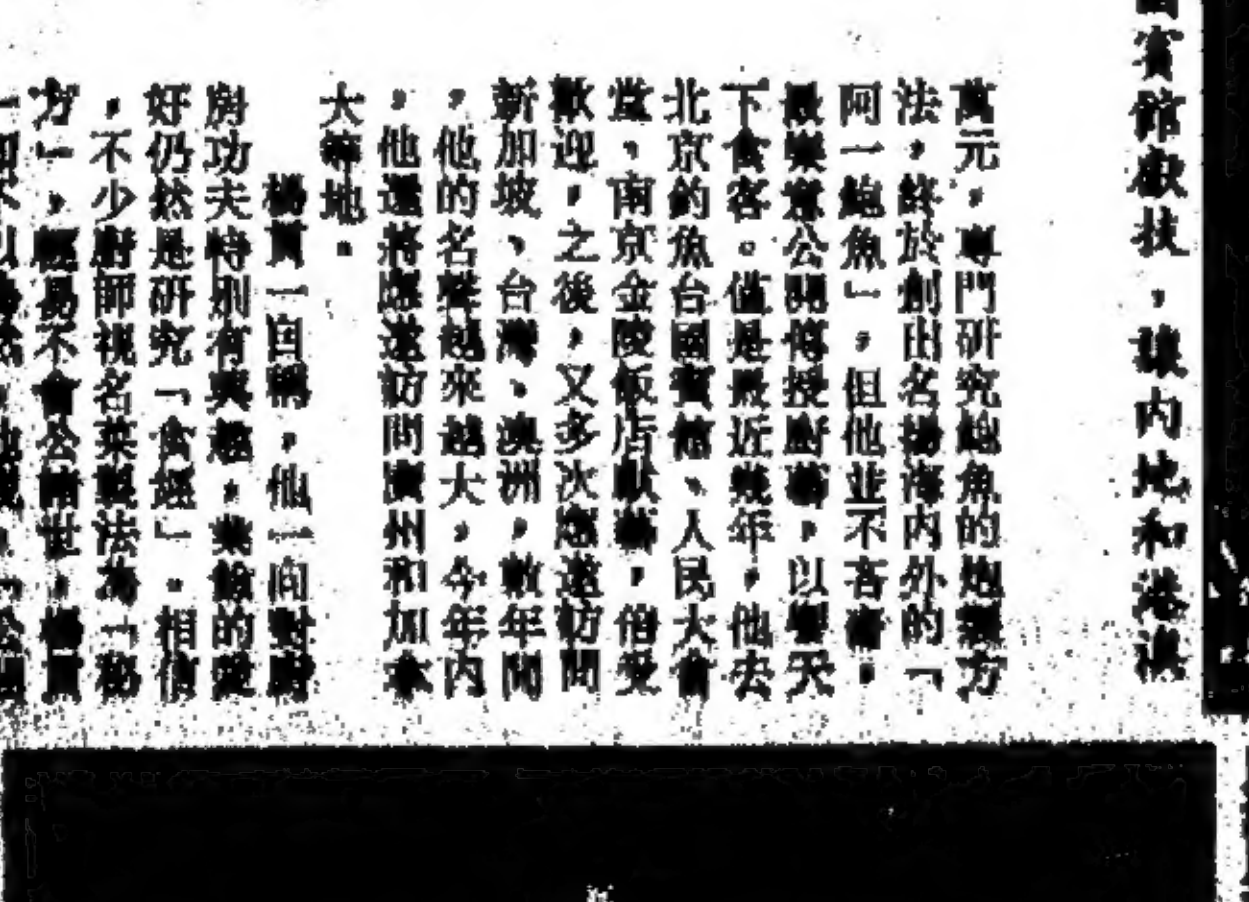 賓館獻技，讓內地和港澳
萬元，專門研究鮑魚的炮製方
法，終於創出名揚海內外的「
阿一鮑魚」，但他並不吝嗇，
最樂意公開傳授廚藝，以饗天
下食客。值是最近幾年，他去
北京釣魚台國賓館、人民大會
堂、南京金陵飯店獻藝，倍受
歡迎，之後，又多次應邀訪問
新加坡、台灣、澳洲，數年間
，他的名聲越來越大，今年內
，他還將應邀訪問澳州和加拿
大等地。
楊貫一自稱，他一向對廚
房功夫特別有興趣，業餘的愛
好仍然是研究「食經」。相信
，不少廚師視名菜製法為「秘
方」，輕易不會公諸世，楊貫